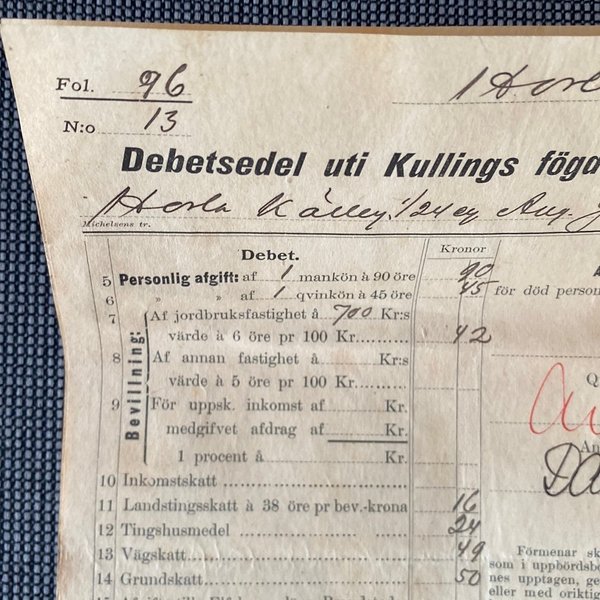 Fol. 96
Horla
N:o 13
Debetsedel uti Kullings föga
Horla Källeg. 1/24 eg Aug. J
Michelsens tr.
Debet. Kronor
5 Personlig afgift: af 1 mankön à 90 öre 90
6 » » af 1 qvinkön à 45 öre 45 för död person
Bevillning:
7 Af jordbruksfastighet à 700 Kr:s
värde à 6 öre pr 100 Kr. 42
8 Af annan fastighet à Kr:s
värde à 5 öre pr 100 Kr.
9 För uppsk. inkomst af Kr.
medgifvet afdrag af Kr.
1 procent å Kr.
10 Inkomstskatt
11 Landstingsskatt à 38 öre pr bev.-krona 16
12 Tingshusmedel 24
13 Vägskatt 49
14 Grundskatt 50
Förmenar sk
som i uppbördsbo
nes upptagen, ge
eller med oriktig